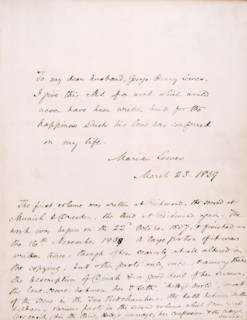 To my dear husband, George Henry Lewes,
I give this MS. of a work which would
never have been written but for the
happiness which his love has conferred
on my life.
Marian Lewes
March 23. 1859
The first volume was written at Richmond, the second at
Munich & Dresden, the third at Richmond again. The
work was begun on the 22nd October 1857, & finished on
the 16th November 1858. A large portion of it was
written twice, though often scarcely at all altered in
the copying; but other parts only once, & among these
the description of Dinah & a good deal of her sermon,
the love scene between her & Seth, "Hetty's world", most
of the scene in the Two Bedchambers,
various parts in the second volume